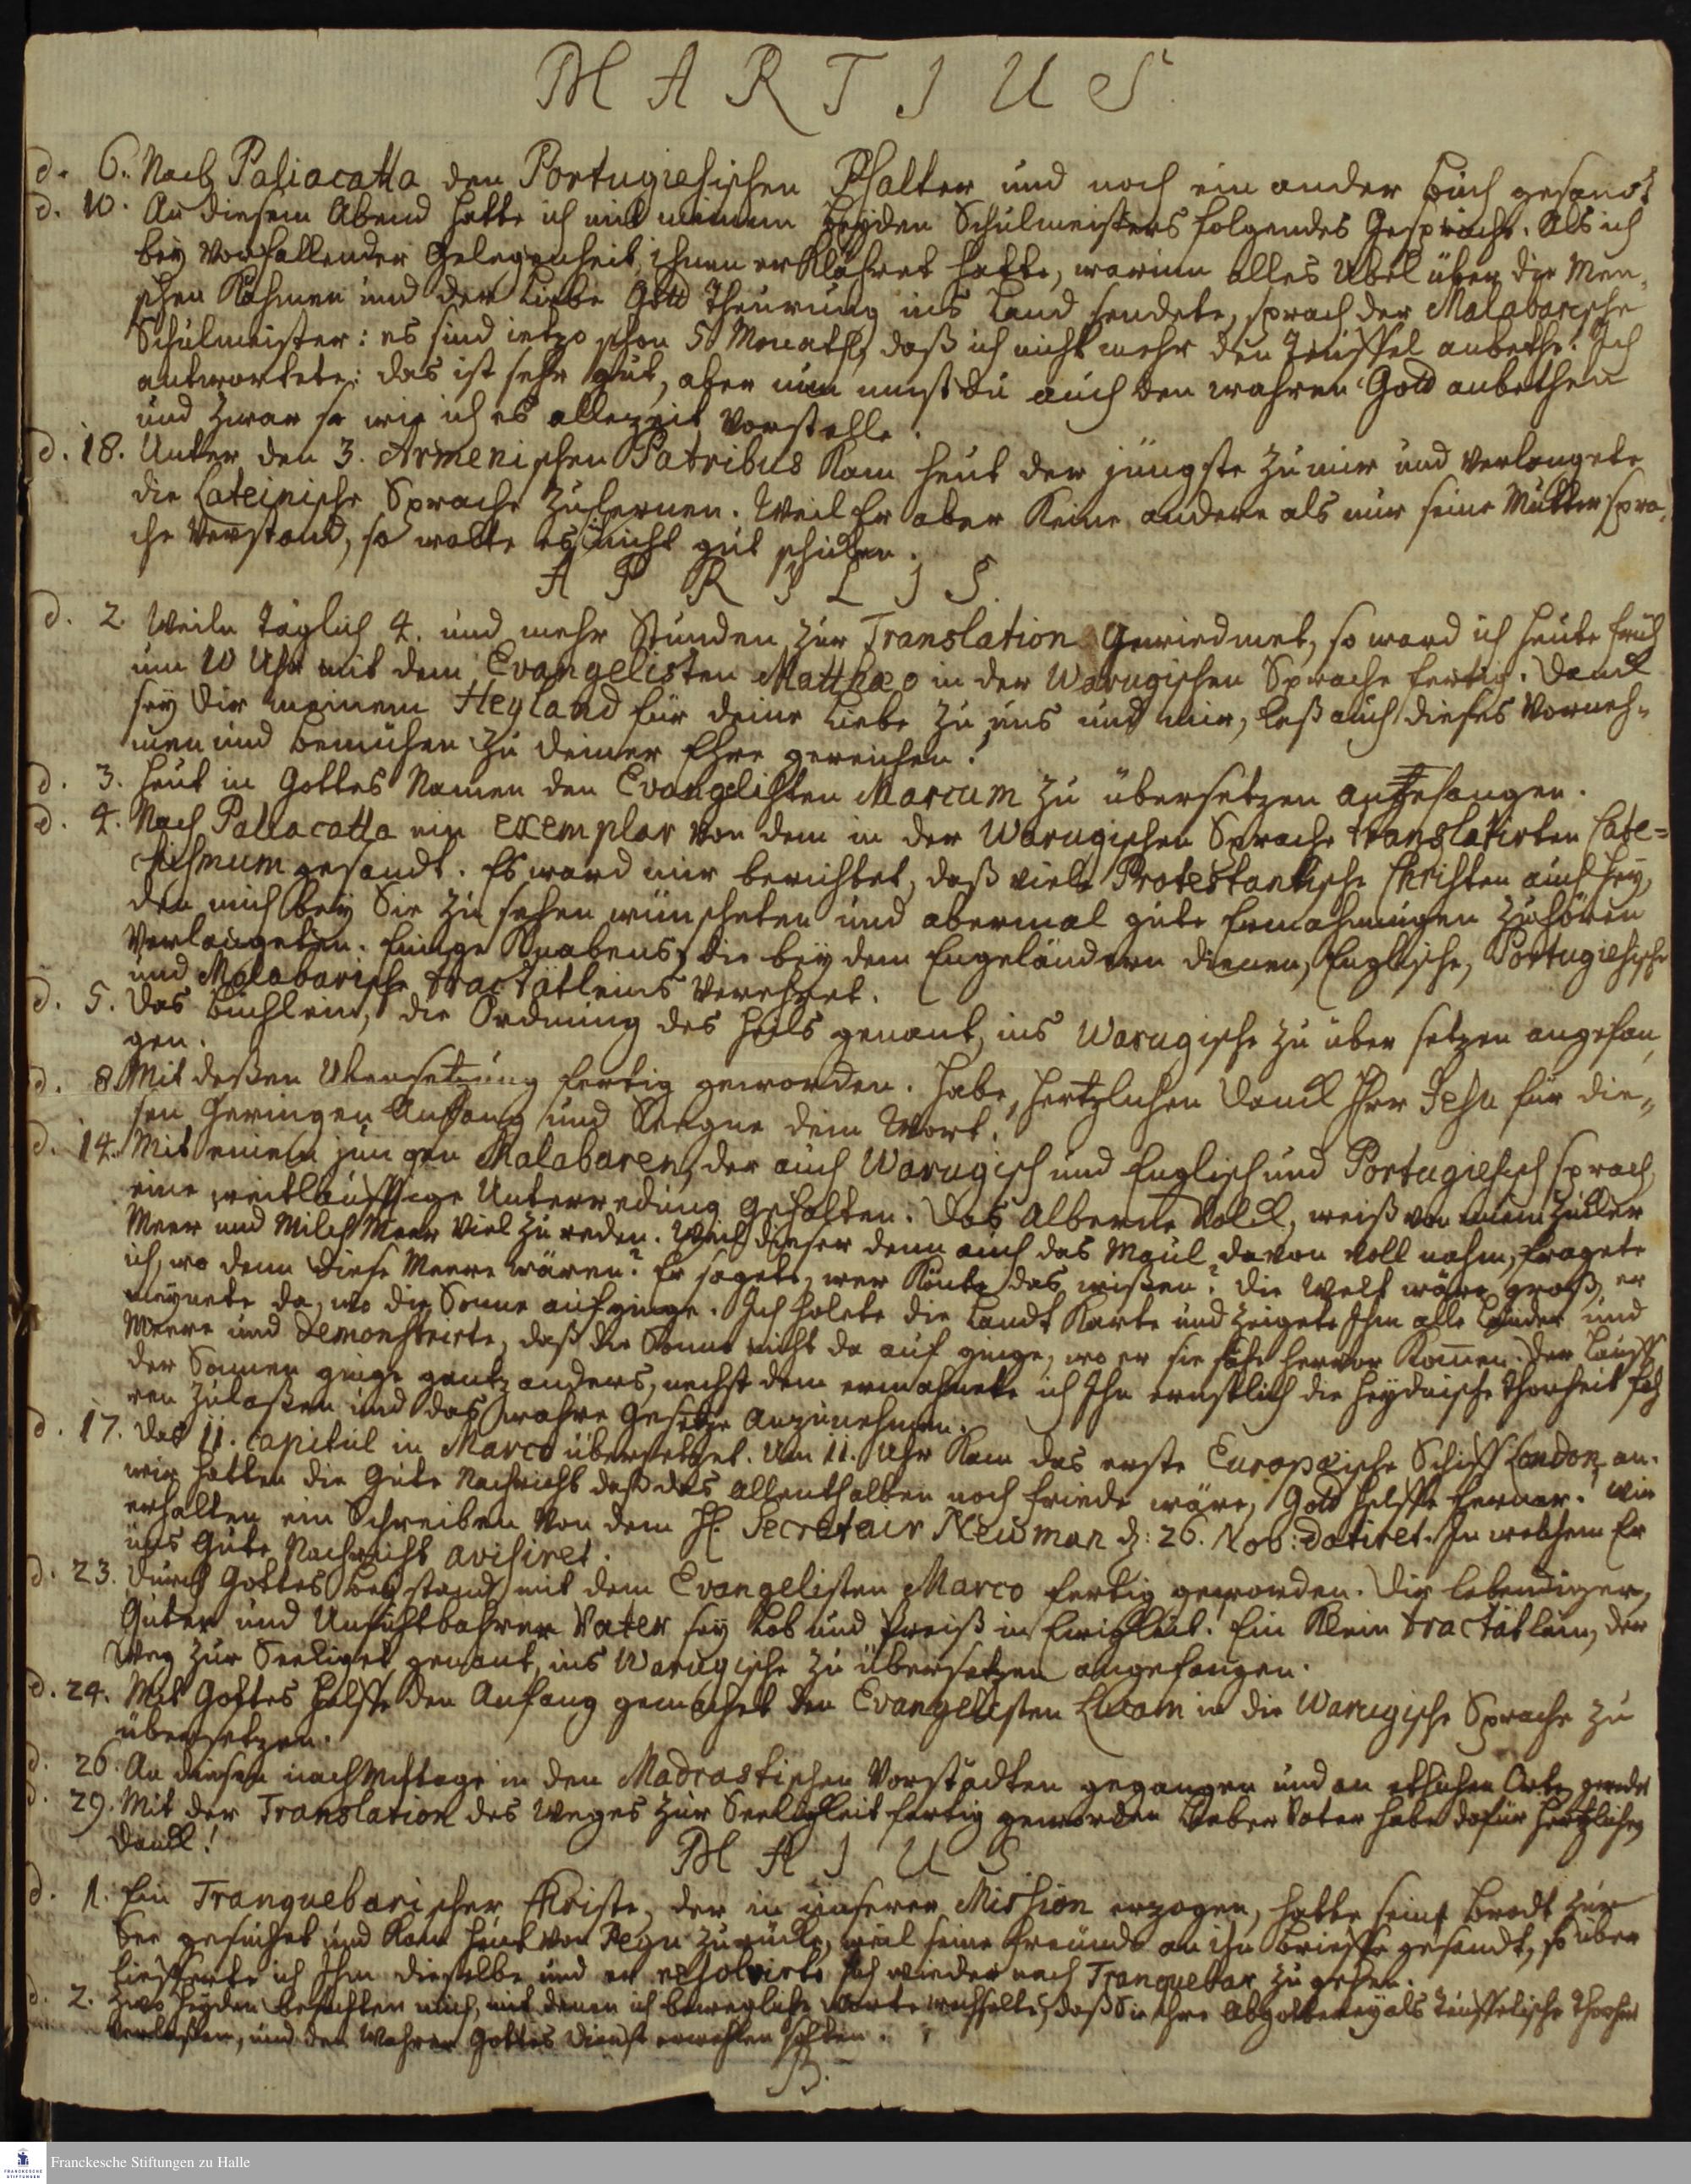 MARTIUS.
d. 6. Nach Paliacatta den Portugiesischen Psalter und noch ein ander Buch gesandt
d. 10. An diesem Abend hatte ich mit meinem Heyden Schulmeisters folgendes Gespräche. Als ich
bey vorfallender Gelegenheit, ihnen erklähret hatte, warum alles Übel über die Men-
schen kähmen und der Liebe Gott Theurung ins Land sendete, sprach der Malabarische
Schulmeister: es sind ietzo schon 5 Monath, daß ich nicht mehr den Teuffel anbethe. Ich
antwortete: das ist sehr gut, aber nun must du auch den wahren Gott anbethen
und zwar so wie ich es allezeit vorstelle.
d. 18. Unter den 3. Armenischen Patribus kam heut der jüngste zu mir und verlangete
die Lateinische Sprache zu lernen. Weil Er aber keine andere als nur seine Mutterspra-
che verstand, so wolte es nicht gut schicken.
APRILIS.
d. 2. Weiln täglich 4. und mehr Stunden zur Translation gewiedmet, so ward ich heute früh
um 10 Uhr mit dem Evangelisten Matthæo in der Warugischen Sprache fertig. Danck
sey dir meinem Heyland für deine Liebe zu uns und mir, laß auch dieses Vorneh-
men und bemühen zu deiner Ehre gereichen!
d. 3. Heut in Gottes Namen den Evangelisten Marcum zu übersetzen angefangen.
d. 4. Nach Paliacatta ein exemplar von dem in der Warugischen Sprache translatirten Cate-
chismum gesandt. Es ward mir berichtet, daß viele Protestantische Christen auch Hey-
den mich bey Sie zu sehen wünscheten und abermal gute Ermahnungen zuhören
verlangeten. Einige Knabens, die bey dem Engeländern dienen, Englische, Portugiesische
und Malabarische tractätleins verehret.
d. 5. Das Büchlein, die Ordnung des Heils genant, ins Warugische zu über setzen angefan-
gen.
d. 8. Mit deßen Übersetzung fertig geworden. Habe, hertzlichen Danck Herr Jesu für die-
sen geringen Anfang und Seegne dein Wort!
d. 14. Mit einem jungen Malabaren, der auch Warugisch und Englisch und Portugiesisch sprach,
eine weitläuffige Unterredung gehalten. Das Alberne Volck, weiß von einem Zucker
Meer und Milch Meer viel zu reden. Weil dieser denn auch das Maul davon voll nahm, fragete
ich, wo denn diese Meere wären? Er sagete, wer könte das wißen? die Welt wäre groß, er
meynete da, wo die Sonne aufginge. Ich holete die Landt Karte und zeigete Ihm alle Länder und
Meere und demonstrirte, daß die Sonne nicht da auf ginge, wo er sie sähe hervor kommen. Der Lauff
der Sonnen ginge gantz anders, nechst dem ermahnete ich Ihn ernstlich die heydnische Thorheit fah-
ren zulaßen und das wahre Gesetze anzunehmen.
d. 17. Das 11. capitul in Marco übersetzet. Um 11. Uhr kam das erste Europæische Schiff London an.
wir hatten die Gute Nachricht daß das allenthalben noch Friede wäre, Gott helffe ferner! Wir
erhalten ein Schreiben von dem H. Secretair Newman d: 26. Nob: datiret. In welchem Er
uns Gute Nachricht avisiret.
d. 23. Durch Gottes Beystand mit dem Evangelisten Marco fertig geworden. Dir lebendiger,
Guter und Unsichtbahrer Vater sey Lob und Preiß in Ewigkeit. Ein klein tractätlein, der
Weg zur Seeligkeit genant, ins Warugische zu übersetzen angefangen.
d. 24. Mit Gottes Hülffe den Anfang gemachet den Evangelisten Lucam in die Warugische Sprache zu
übersetzen.
d. 26. An diesen nach Mittage in den Madrastischen Vorstädten gegangen und an etlichen Orten geredet
d. 29. Mit der Translation des Weges zur Seeligkeit fertig geworden Lieber Vater habe dafür hertzlichen
Danck!
MAIUS
d. 1. Ein Tranquebarischer Christe, der in unserer Mission erzogen, hatte sein Brodt zur
See gesuchet und kam heut von Pegu zurücke, weil seine Freunde an ihn Brieffe gesandt, so über
lieferte ich Ihm dieselbe und er resolvirte sich wieder nach Tranquebar zu gehen.
d. 2. Zwo Heyden besuchten mich, mit denen ich bewegliche Worte wechselte, daß Sie Ihre Abgötterey als teuffelische Thorheit
verlaßen, und den Wahren Gottes Dienst erwehlen solten.
Franckesche Stiftungen zu Halle